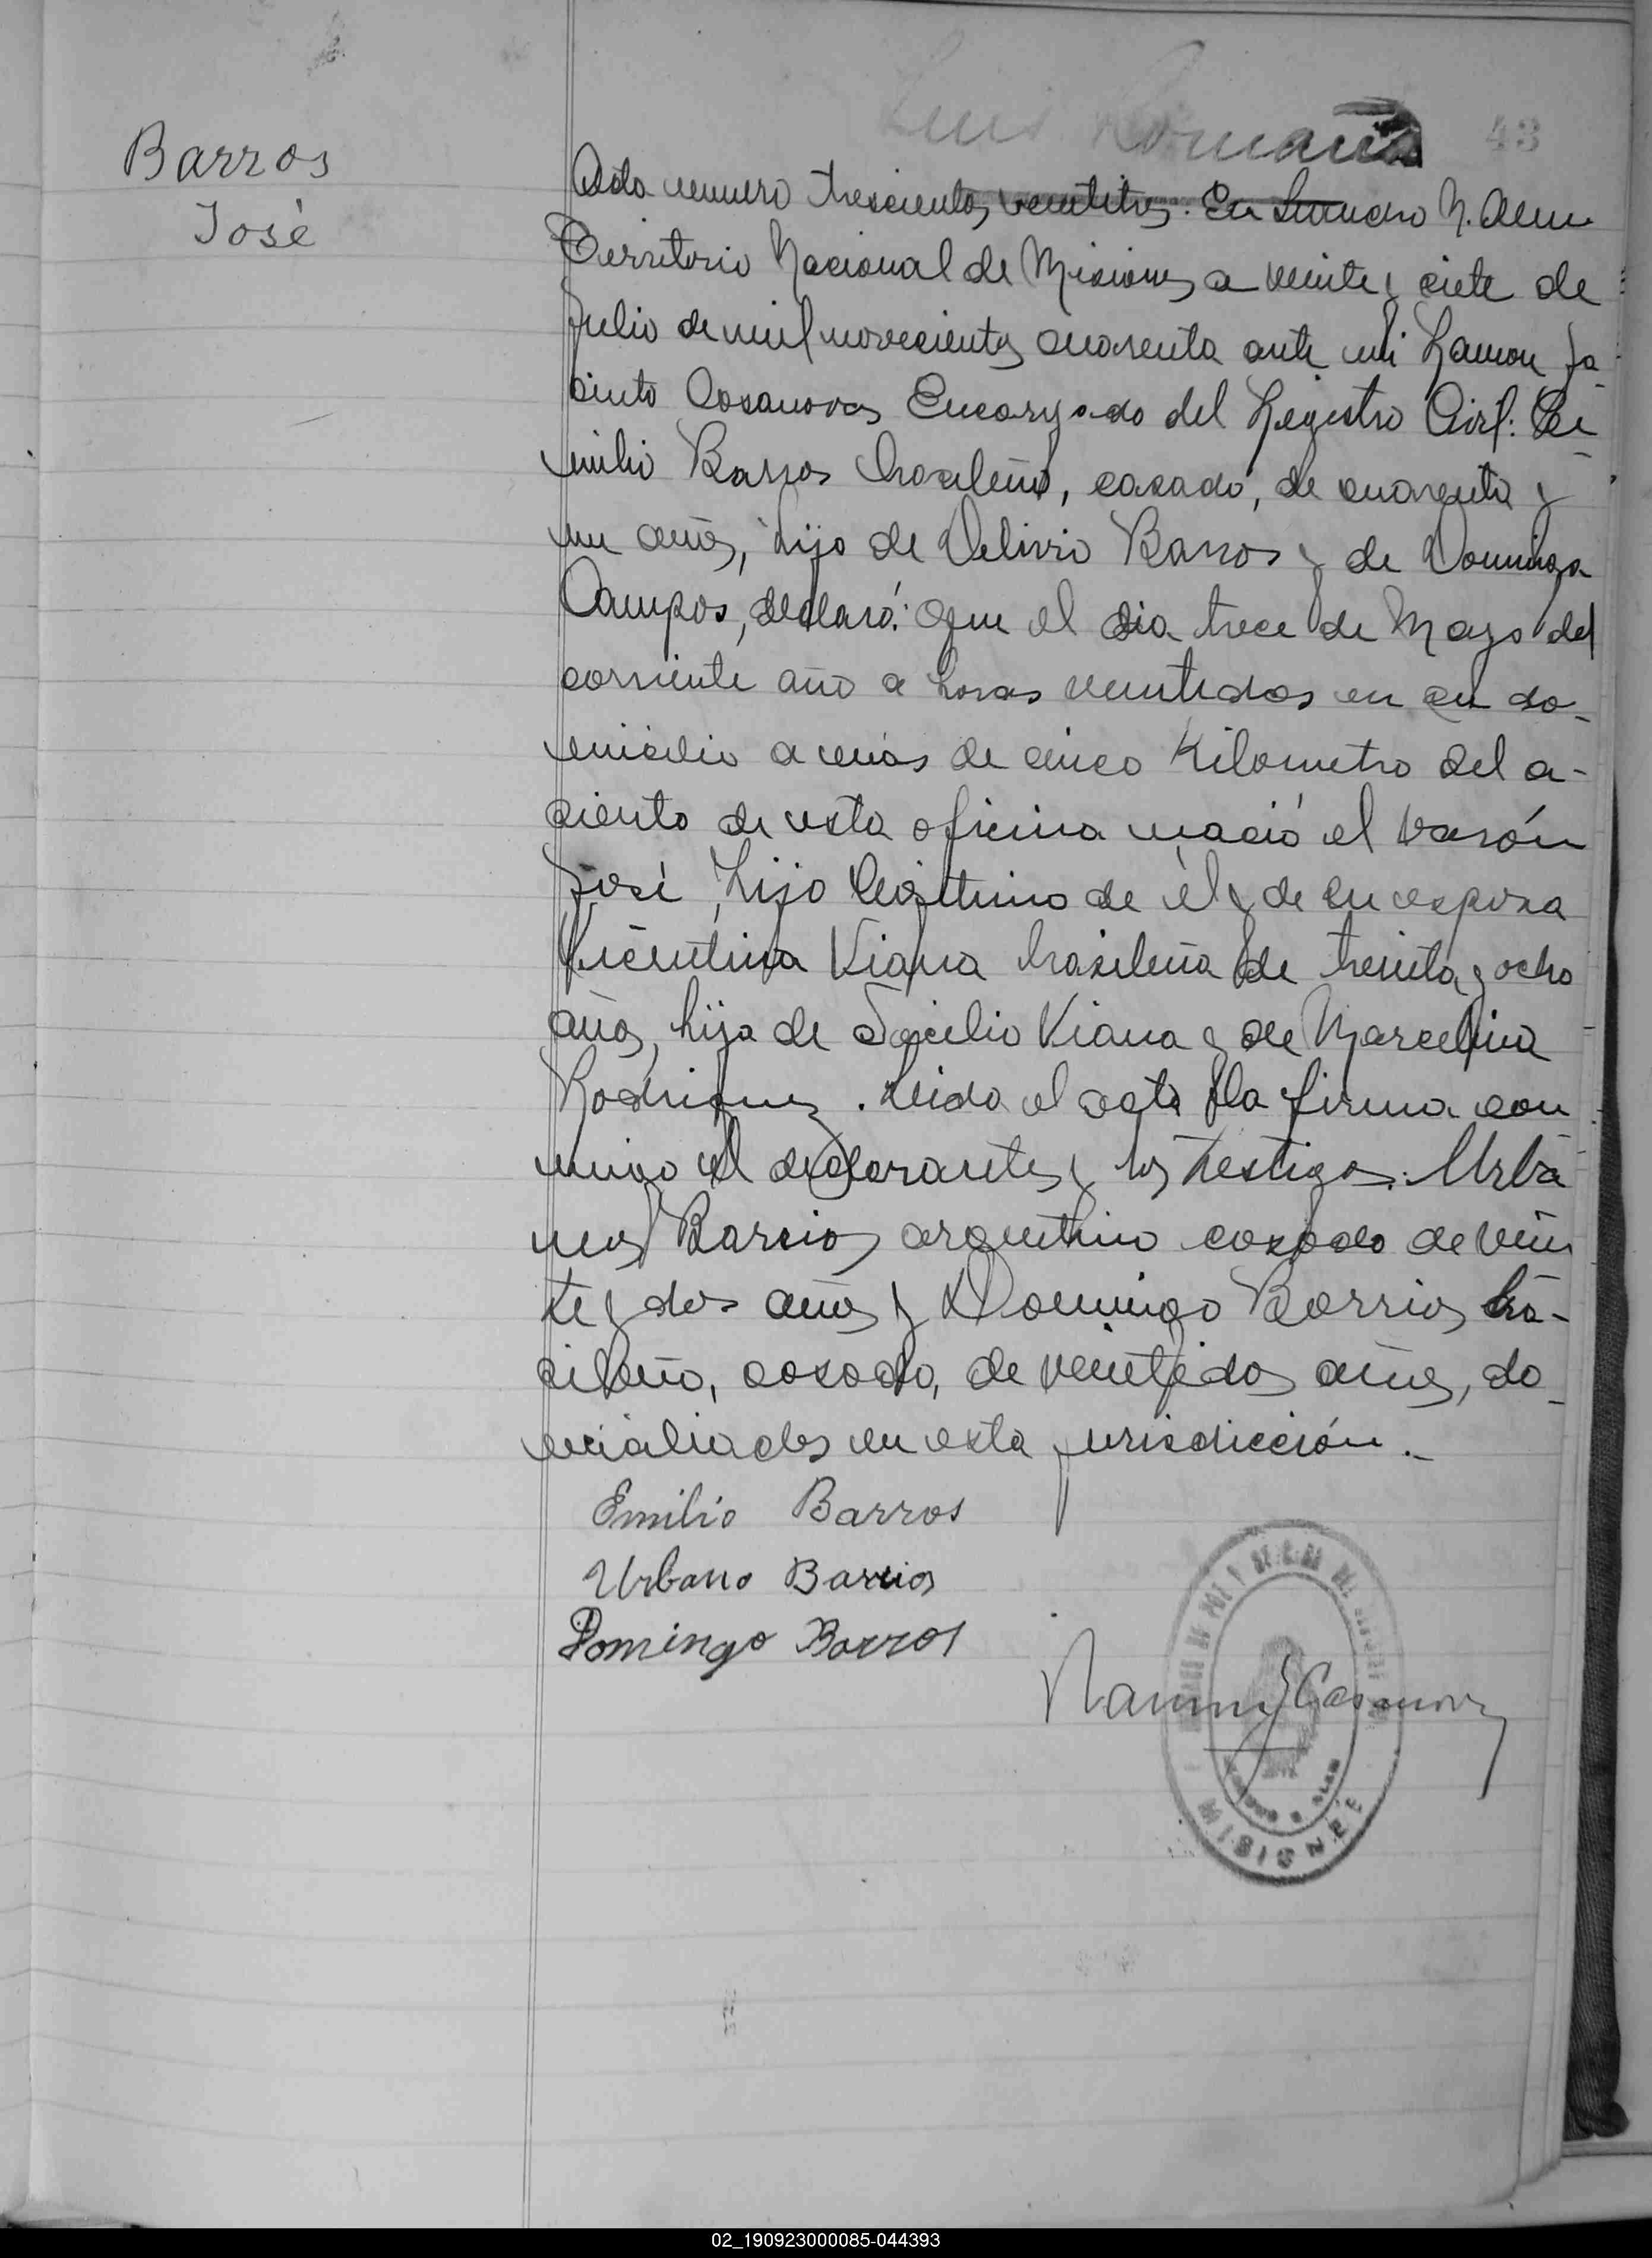 Luis Romaña
43
Barros
José
Acta numero trescientos veintitres. En Leandro N. Alem
Territorio Nacional de Misiones a veinte y siete de
Julio de mil novecientos cuarenta ante mi Ramon Ja-
cinto Casanovas Encargado del Registro Civil:
milio Barros brasileño, casado, de cuarenta y
un años, hijo de Barros y de Dominga
Campos, declaró: Que el dia trece de Mayo del
corriente año a horas veintidos en su do-
micilio a más de cinco Kilometro del a-
ciento de esta oficina nació el varón
José, hijo legitimo de él y de su esposa
Viana brasileña de treinta y ocho
años, hija de Viana y de Marcelina
Rodriguez. Leida el acta la firma con
migo el declarante y los testigos: Urba
nos Barrios argentino casado de vein
te y dos años y Domingo Barrios bra-
sileño, casado, de veintidos años, do-
miciliados en esta jurisdicción.-
Emilio Barros
Urbano Barrios
Domingo Barros
Ramon J Casanovas
MISIONES
02_190923000085-044393